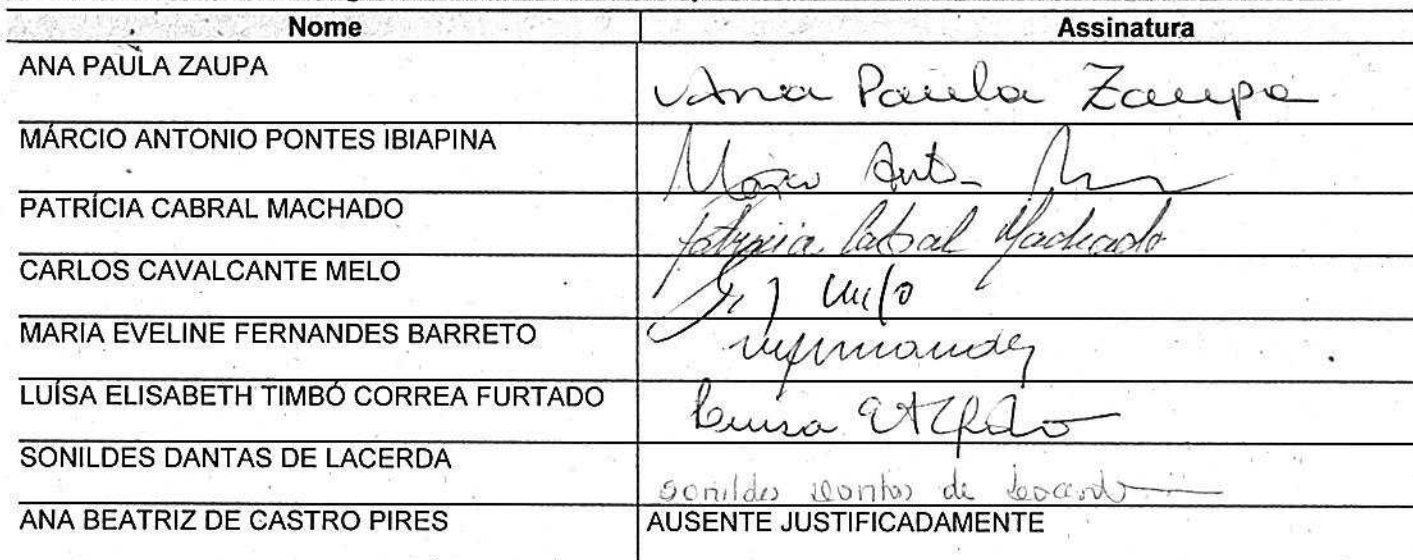 Nome Assinatura
ANA PAULA ZAUPA Ana Paula Zaupa
MÁRCIO ANTONIO PONTES IBIAPINA Márcio Ant
PATRÍCIA CABRAL MACHADO Patrícia Cabral Machado
CARLOS CAVALCANTE MELO Melo
MARIA EVELINE FERNANDES BARRETO
LUÍSA ELISABETH TIMBÓ CORREA FURTADO Luisa
SONILDES DANTAS DE LACERDA sonildes Dantas de Lacerda
ANA BEATRIZ DE CASTRO PIRES AUSENTE JUSTIFICADAMENTE